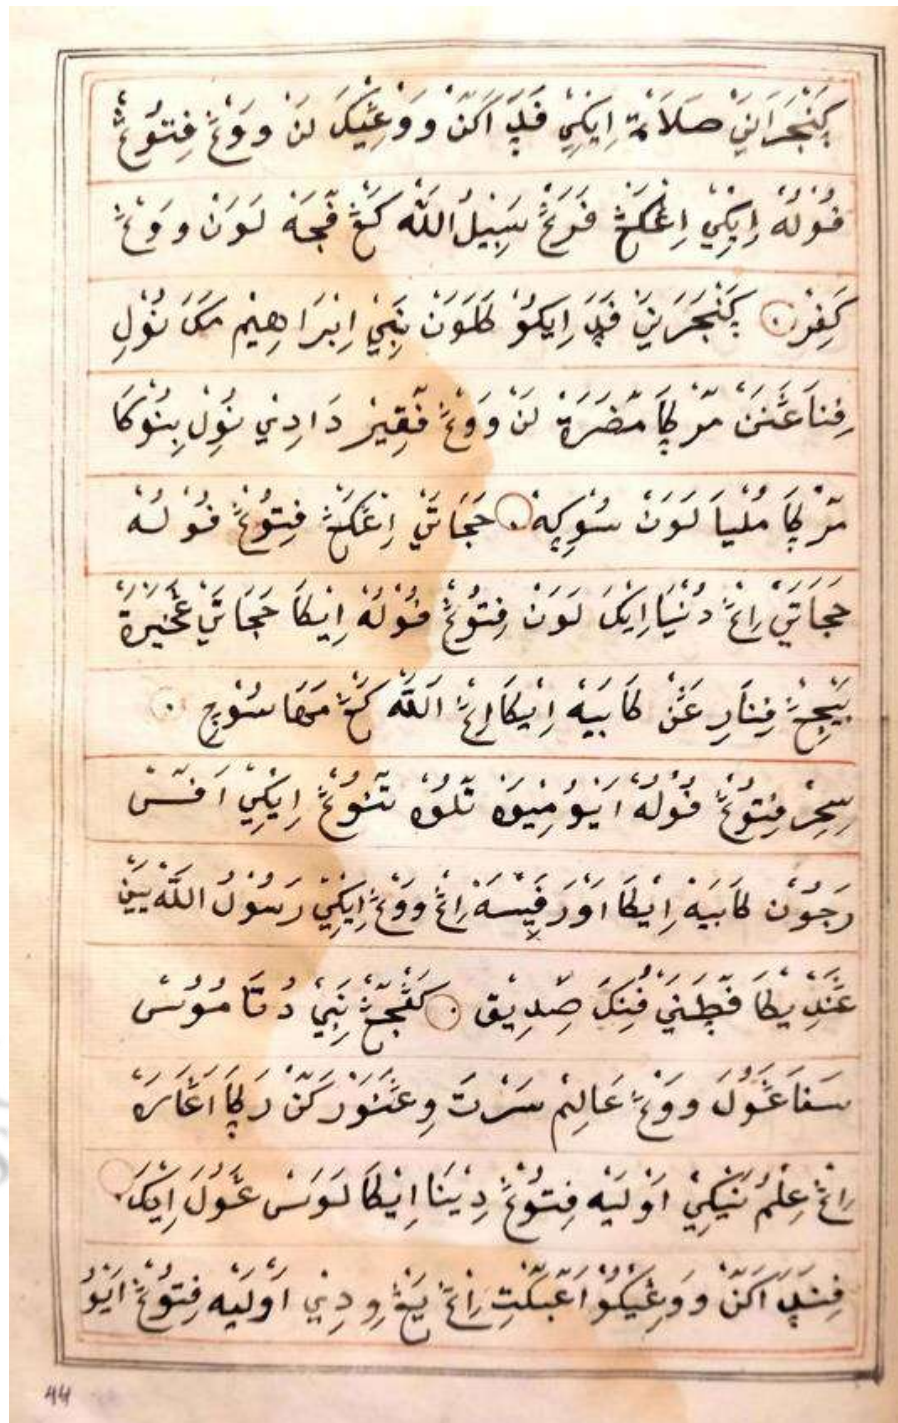 ڮَنْجَرَانَيْ صَلَاة اِيكِيْ فَڊَ اَكَنْ وَوْڠِيْكَ لَنْ ووَڠْ فِتُوڠْ
فُوْلُهْ اِيكِيْ اِڠْكَڠْ فَرَڠْ سَبِيْلُ اللّٰه كَڠْ فَجَهْ لَوَنْ ووَڠْ
كَفِرْ ۝ ڮَنْجَرَنَيْ فَڊَ اِيكُوْ كَلَوَنْ نَبِيْ اِبْرَاهِيْم مَكَ نُوْلِ
فِنَاڠَنَنْ مَرْڮَا مَضَرَةْ لَنْ ووَڠْ فَقِيْر دَادِيْ نُوْلِ بِنُوْكَا
مَرْڮَا مُلْيَا لَوَنْ سُوْڮِهْ ۝ حَجَاتَيْ اِڠْكَڠْ فِتُوڠْ فُوْلُهْ
حَجَاتَيْ رِاڠْ دُنْيَا اِيْكَ لَوَنْ فِتُوڠْ فُوْلُهْ اِيْكَا حَجَاتَيْ ڠَخِيْرَةْ
بَيْجِڠْ فِنَارِڠَنْ كَابَيَهْ اِيْكَا رِاڠْ اَللّٰه كَڠْ مَهَا سُوْچِ ۝
سِحِرْ فِتُوڠْ فُوْلُهْ اَيَوُ مِيْوَهْ تَلُوْ تَنُوڠْ اِيْكِيْ اَفَسْ
رَجُوْن كَابَيَهْ اِيْكَا اَوْرَ فَيْسَهْ رِاڠْ ووَڠْ اِيْكِيْ رَسُوْلُ اللّٰه يَيْنْ
ڠَنْدِيْكَا فَطَنَيْ فُنِكَ صِدِيْق ۝ كَڠْجَڠْ نَبِيْ دُتَا مُوْسْ
سَفَا ڠَوُلَ ووَڠْ عَالِمْ سَرْتَ وِڠَنَوْرَكَنْ رَڮَا اَڠَارَهْ
رِاڠْ عِلْمُ نَيْكِيْ اَوْلَيَهْ فِتُوڠْ دِيْنَا اِيْكَا لَوَسْ ڠَوُلَ اِيْكَ ۝
فِنَڊَ اَكَنْ وَوڠِيْكُوْ اَڠَبَكْتِ رِاڠْ يَڠْ وِدِيْ اَوْلَيَهْ فِتُوڠْ اَيَوُ